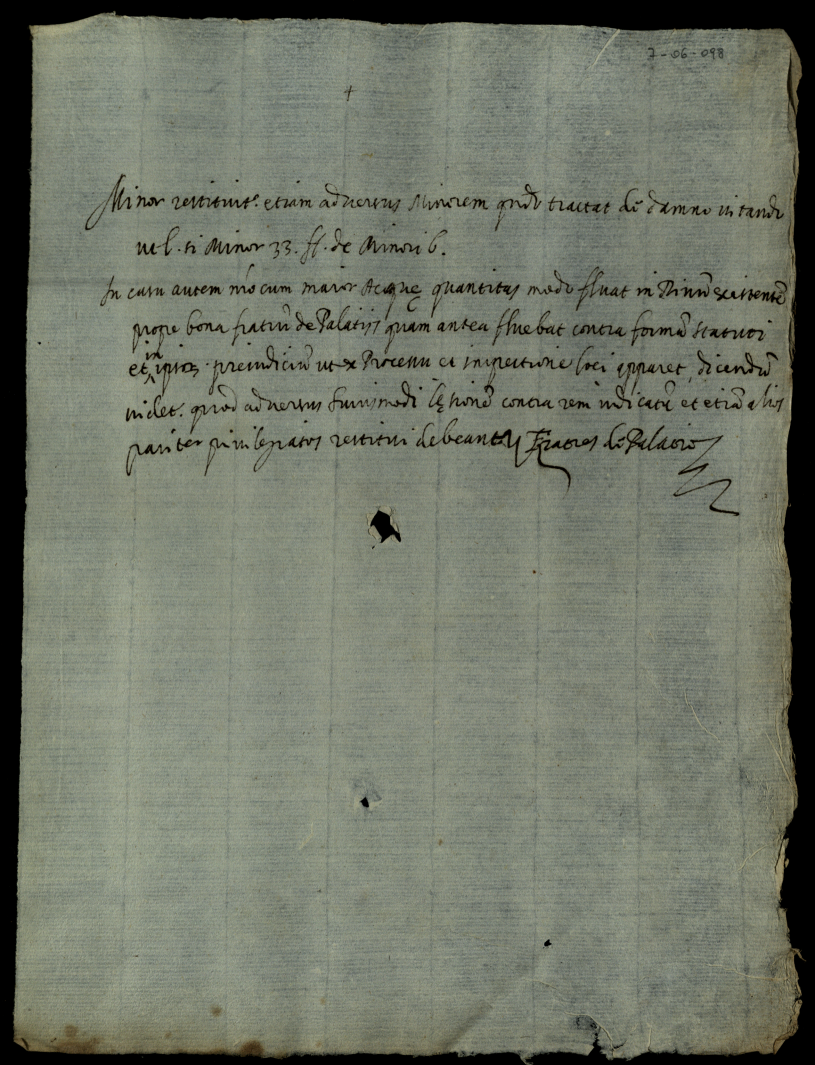 7-06-098
+
Minor restituit.r etiam adversus Minorem qndo tractat de damno vitando
ut l. si Minor 33. ff. de Minorib.
In casu autem nro cum maior Acquę quantitas modo fluat in Rivũ existentẽ
prope bona fratrũ de Palatijs quam antea fluebat contra formã statuti
et in ipsor preiudiciũ ut ex Processu et inspectione loci apparet, dicendũ
videt.r quod adversus huiusmodi lęsionẽ contra rem iudicatã et etiã alios
pariter privilegiatos restitui debeant Fratres de Palatio